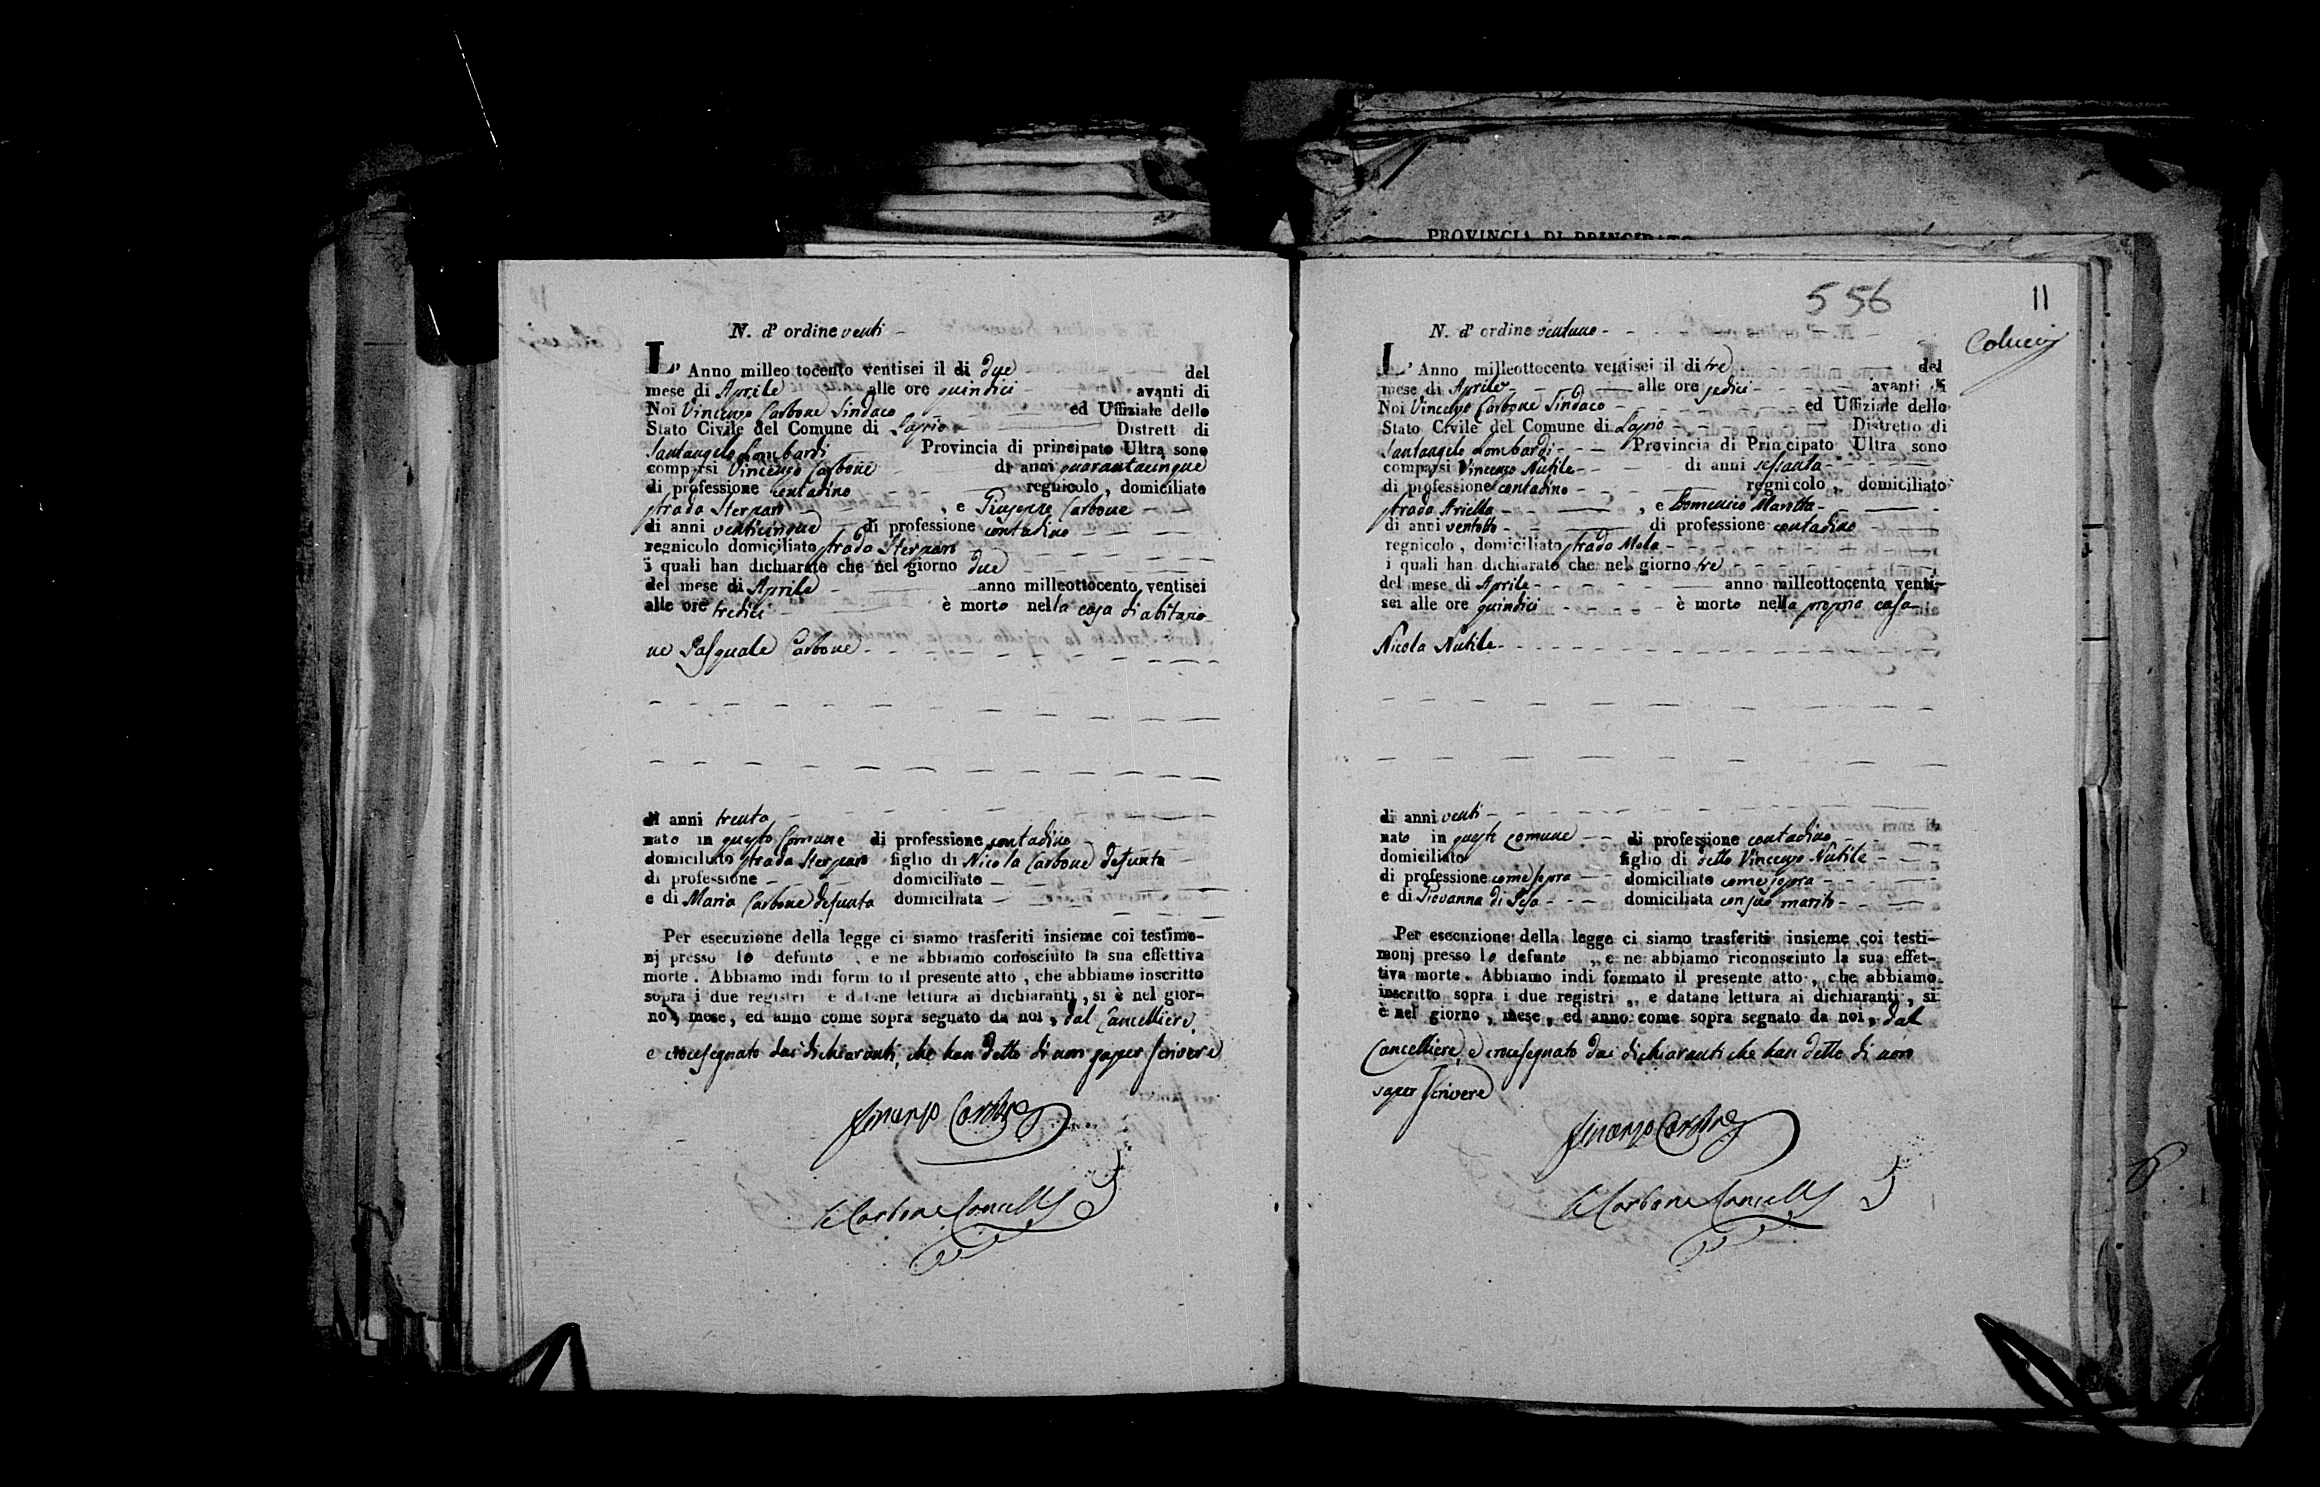 PROVINCIA DI PRINCIPATO
N. d' ordine venti -
L' Anno milleo tocento ventisei il di due del
mese di Aprile alle ore quindici avanti di
Noi Vincenzo Carbone Sindaco ed Uffiziale dello
Stato Civile del Comune di Lapio Distrett di
Santangelo Lombardi Provincia di principato Ultra sono
comparsi Vincenzo Carbone di anni quarantacinque
di professione contadino regnicolo, domiciliato
strada Sterparo , e Giuseppe Carbone
di anni venticinque di professione contadino
regnicolo domiciliato strada Sterparo
i quali han dichiarato che nel giorno due
del mese di Aprile anno milleottocento ventisei
alle ore tredici è morto nella casa di abitazio-
ne Pasquale Carbone
di anni trenta
nato in questo Comune di professione contadino
domiciliato strada Sterparo figlio di Nicola Carbone defunto
di professione domiciliato
e di Maria Carbone defunta domiciliata
Per esecuzione della legge ci siamo trasferiti insieme coi testimo-
nj presso lo defunto , e ne abbiamo conosciuto la sua effettiva
morte. Abbiamo indi form to il presente atto, che abbiamo inscritto
sopra i due registri e datane lettura ai dichiaranti, si è nel gior-
no, mese, ed anno come sopra segnato da noi, dal Cancelliere,
e crocesegnato dai dichiaranti, che han detto di non saper scrivere
Vincenzo Carbone
Carbone Cancell
556
11
Colucci
N. d' ordine ventuno
L' Anno milleottocento ventisei il di tre del
mese di Aprile alle ore sedici avanti di
Noi Vincenzo Carbone Sindaco ed Uffiziale dello
Stato Civile del Comune di Lapio Distretto di
Santangelo Lombardi Provincia di Principato Ultra sono
comparsi Vincenzo Nutile di anni sessanta
di professione contadino regnicolo, domiciliato
strada Ariella , e Domenico Marotta
di anni ventotto di professione contadino
regnicolo, domiciliato strada Mola
i quali han dichiarato che nel giorno tre
del mese di Aprile anno milleottocento venti-
sei alle ore quindici è morto nella propria casa
Nicola Nutile
di anni venti
nato in questo comune di professione contadino
domiciliato figlio di detto Vincenzo Nutile
di professione come sopra domiciliato come sopra
e di Giovanna di Peso domiciliata con suo marito
Per esecuzione della legge ci siamo trasferiti insieme coi testi-
monj presso lo defunto ,, e ne abbiamo riconosciuto la sua effet-
tiva morte. Abbiamo indi formato il presente atto, che abbiamo
inscritto sopra i due registri ,, e datane lettura ai dichiaranti, si
è nel giorno, mese, ed anno come sopra segnato da noi, dal
Cancelliere, e crocesegnato dai dichiaranti che han detto di non
saper scrivere
Vincenzo Carbone
Carbone Cancell